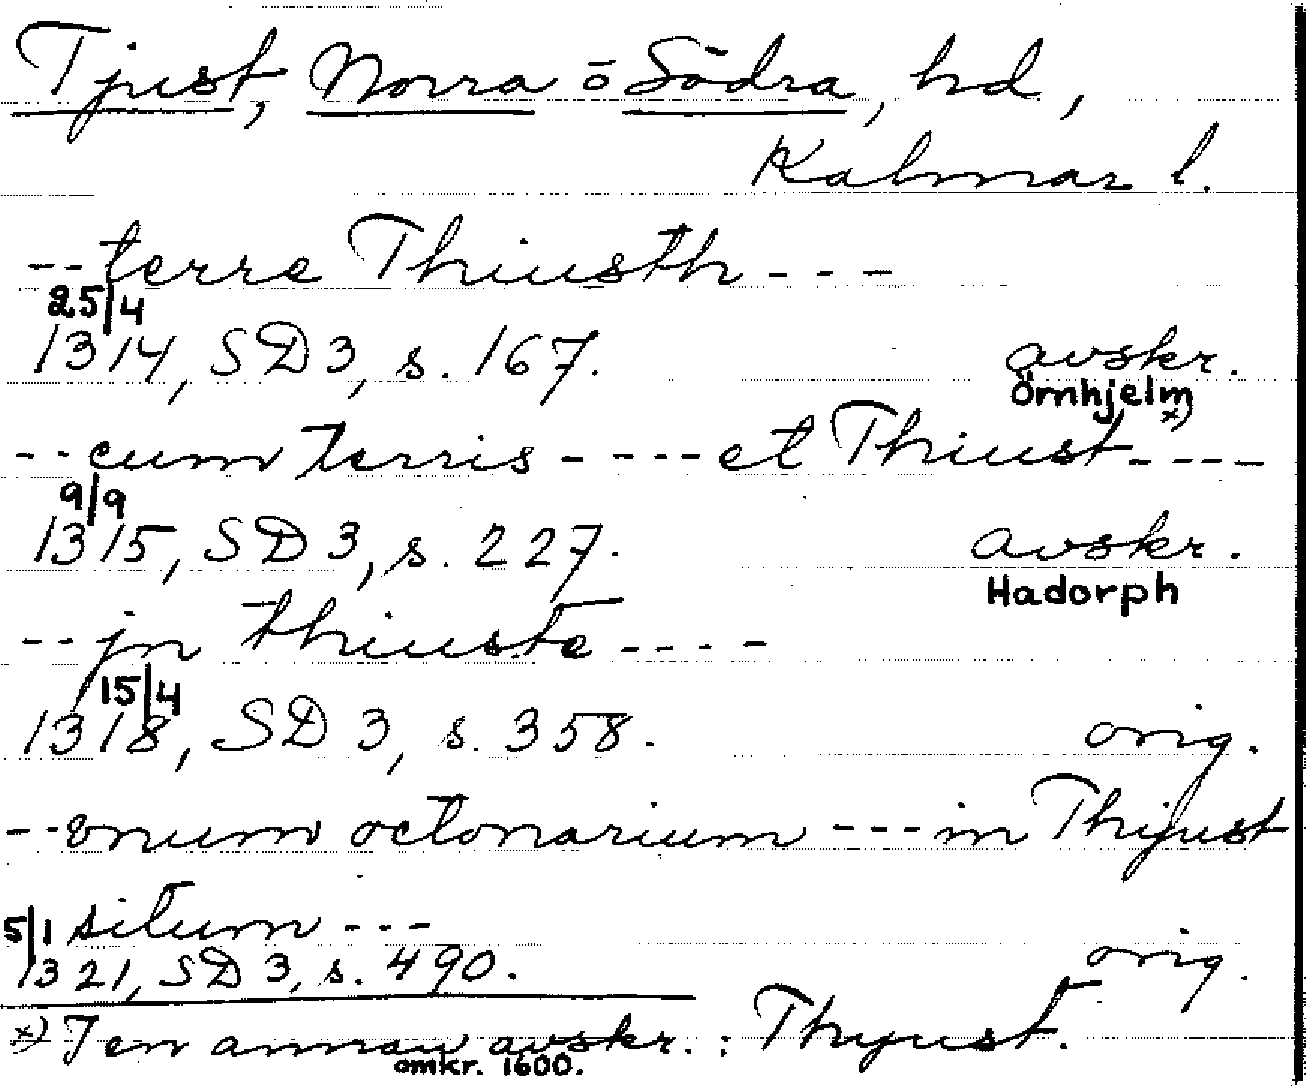 Tjust, Norra o Södra, hd,
Kalmar l.
-- terre Thiusth ---
25/4
1314, SD 3, s. 167. avskr.
Örnhjelm
-- cum terris ---- et Thiust x) ----
9/9
1315, SD 3, s. 227. avskr.
Hadorph
-- jn thiuste ----
15/4
1318, SD 3, s. 358. orig.
-- vnum octonarium --- in Thijust
situm ---
5/1
1321, SD 3, s. 490. orig.
x) I en annan avskr. : Thyust.
omkr. 1600.